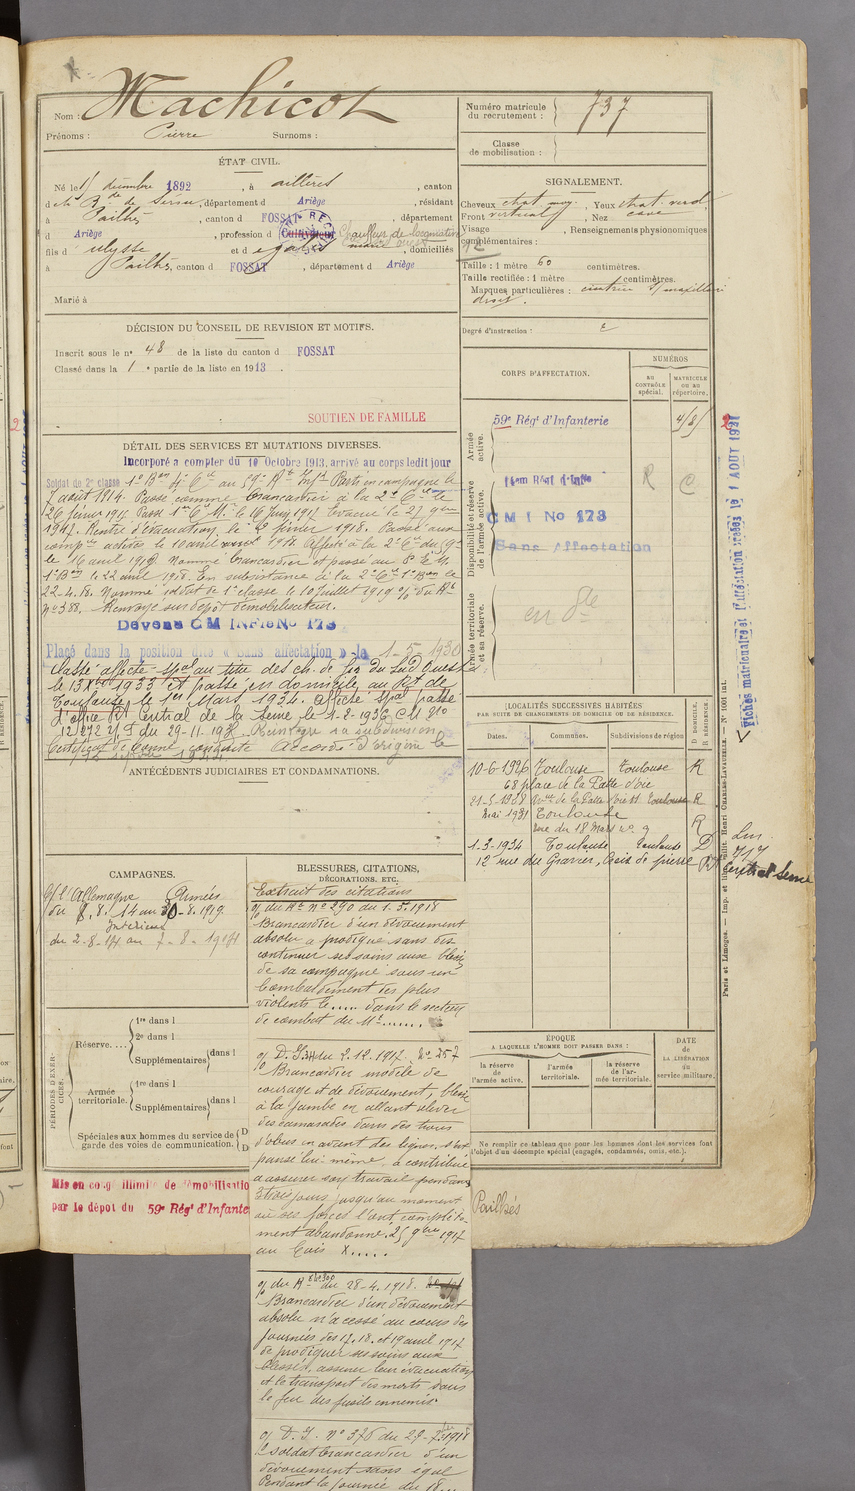 Nom : Machicot
Prénoms : Pierre Surnoms :
ÉTAT CIVIL.
Né le 1 décembre 1892, à aillères, canton
d de Serou, département d Ariège, résidant
à Pailhès, canton d FOSSAT, département
d Ariège, profession d Cultivateur Chauffeur de locomotive
fils d' ulysse et d , domiciliés
à Pailhès, canton d FOSSAT, département d Ariège
Marié à
DÉCISION DU CONSEIL DE REVISION ET MOTIFS.
Inscrit sous le n° 48 de la liste du canton d FOSSAT
Classé dans la 1 e partie de la liste en 1913.
SOUTIEN DE FAMILLE
DÉTAIL DES SERVICES ET MUTATIONS DIVERSES.
Incorporé a compter du 10 Octobre 1913, arrivé au corps ledit jour
Soldat de 2e classe 1er Bon Cie au 59e Rt Infie Parti en campagne le
7 août 1914. Passé comme brancardier à la 2e Cie le
26 février 1917 Passé 1re C. M. le 16 Juin 1917 Evacué le 27 9bre
1917. Rentré d'évacuation le février 1918. Passé aux
comp ies actives le 10 avril 1918. Affecté à la 2e Cie du 59e
le 16 avril 1918 Nommé brancardier et passé au
1er Bon le 22 avril 1918. En subsistance à la 2e Cie 1er Bon le
22.4.18. Nommé soldat de 1e classe le 10 Juillet 1919 % du Rt
N° 388. Renvoyé sur dépôt démobilisateur.
Devenu CM INFIE No 173
Placé dans la position dite « Sans affectation » le 1-5-1930
Classé affecté spal au titre des ch. de fer du Sud Ouest
le 13 1933 et passé en domicile au Rt de
Toulouse le 1er Mars 1934. Affecté spal passé
d'office Rt Central de la Seine le 1-2-1936 CM N°
12272 du 29-11-19 Réintégré sa subdivision
Certificat de bonne conduite Accordé d'origine le
ANTÉCÉDENTS JUDICIAIRES ET CONDAMNATIONS.
CAMPAGNES.
C/ l'Allemagne Armées
du 8.8.14 au 30-8.1919
Intérieur
du 2-8-14 au 7-8-1914
PÉRIODES D'EXERCICES.
Réserve....
1re dans l
2e dans l
Supplémentaires dans l
Armée territoriale.
1re dans l
Supplémentaires dans l
Spéciales aux hommes du service de garde des voies de communication.
D
D
Mis en congé illimité de démobilisatio
par le dépot du 59e Régt d'Infante
BLESSURES, CITATIONS,
DÉCORATIONS, ETC.
Extrait des citations
% du Rt n° 290 du 1.5.1918
Brancardier d'un dévouement
absolu a prodigué sans dis-
continuer ses soins aux blessés
de sa compagnie sous un
bombardement des plus
violents le ..... dans le secteur
de combat du Mt .......
% D. I. 34 du 2.12.1917. N° 257
Brancardier modèle de
courage et de dévouement, blessé
à la jambe en allant relever
des camarades dans des trous
d'obus en avant des lignes, s'est
pansé lui-même, a contribué
à assurer son travail pendant
trois jours jusqu'au moment
où ses forces l'ont complète-
ment abandonné. 25 9bre 1917
au bois X.....
% du Rt du 28-4.1918.
Brancardier d'un dévouement
absolu n'a cessé au cours des
journées des 17.18. et 19 avril 1917
de prodiguer ses soins aux
blessés, assurer leur évacuation
et le transport des morts sous
le feu des fusils ennemis.
% D. I. n° 376 du 29-7-1918
soldat brancardier d'un
dévouement sans égal
Pendant la journée du 18
Numéro matricule du recrutement : 737
Classe de mobilisation :
SIGNALEMENT.
Cheveux chat. moy., Yeux chat. verd.
Front vertical, Nez cave
Visage , Renseignements physionomiques
complémentaires :
Taille : 1 mètre 60 centimètres.
Taille rectifiée : 1 mètre centimètres.
Marques particulières : cicatrice s/ maxillaire
droit.
Degré d'instruction :
CORPS D'AFFECTATION.
NUMÉROS
AU CONTRÔLE spécial.
MATRICULE ou au répertoire.
Armée active.
59e Régt d'Infanterie
Disponibilité et réserve de l'armée active.
14em Régt d'Infie R C
C M I No 173
Sans Affectation
Armée territoriale et sa réserve.
en dte
LOCALITÉS SUCCESSIVES HABITÉES
PAR SUITE DE CHANGEMENTS DE DOMICILE OU DE RÉSIDENCE.
Dates. Communes. Subdivisions de région D DOMICILE. R RÉSIDENCE.
10-6-1926 Toulouse Toulouse R
68 place de la Patte d'oie
21-5-1928 de la Patte d'oie 11 Toulouse R
Mai 1931 Toulouse R
rue du 18 Mars n° 9
1-3-1934 Toulouse Toulouse D
12 rue du Gravier, Croix de pierre Rt Central Seine
717
ÉPOQUE
A LAQUELLE L'HOMME DOIT PASSER DANS :
la réserve de l'armée active.
l'armée territoriale.
la réserve de l'armée territoriale.
DATE de LA LIBÉRATION du service militaire.
Ne remplir ce tableau que pour les hommes dont les services font
l'objet d'un décompte spécial (engagés, condamnés, omis, etc.).
Pailhès
Paris et Limoges. — Imp. et libr. milit. Henri CHARLES-LAVAUZELLE. — N° 1001 int.
Fiches matriculaire et d'affectation créées le 1 AOUT 1921